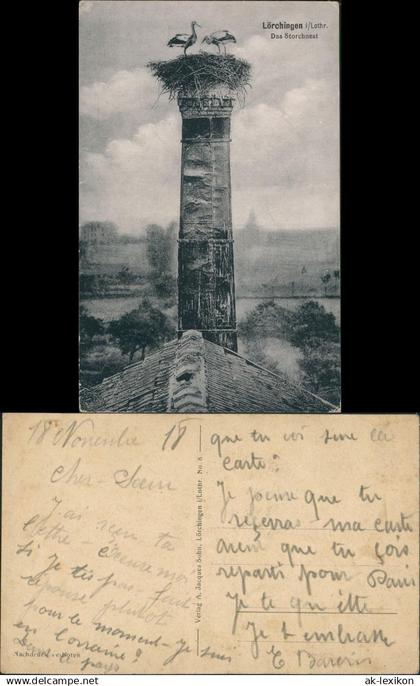 Lörchingen i/Lothr.
Das Storchnest
18 Novembre 18
Cher Sœur
J'ai reçu ta
lettre
si je
réponse plutôt
pour le moment je suis
en Lorraine
Dans le pays
Nachdruck verboten
Verlag A. Jacques Sohn, Lörchingen i/Lothr. No. 8
que tu voi sure la
carte.
Je pense que tu
recevras ma carte
avent que tu sois
reparti pour Paris
Je te quitte
Je t embrasse
E
ak-lexikon.com